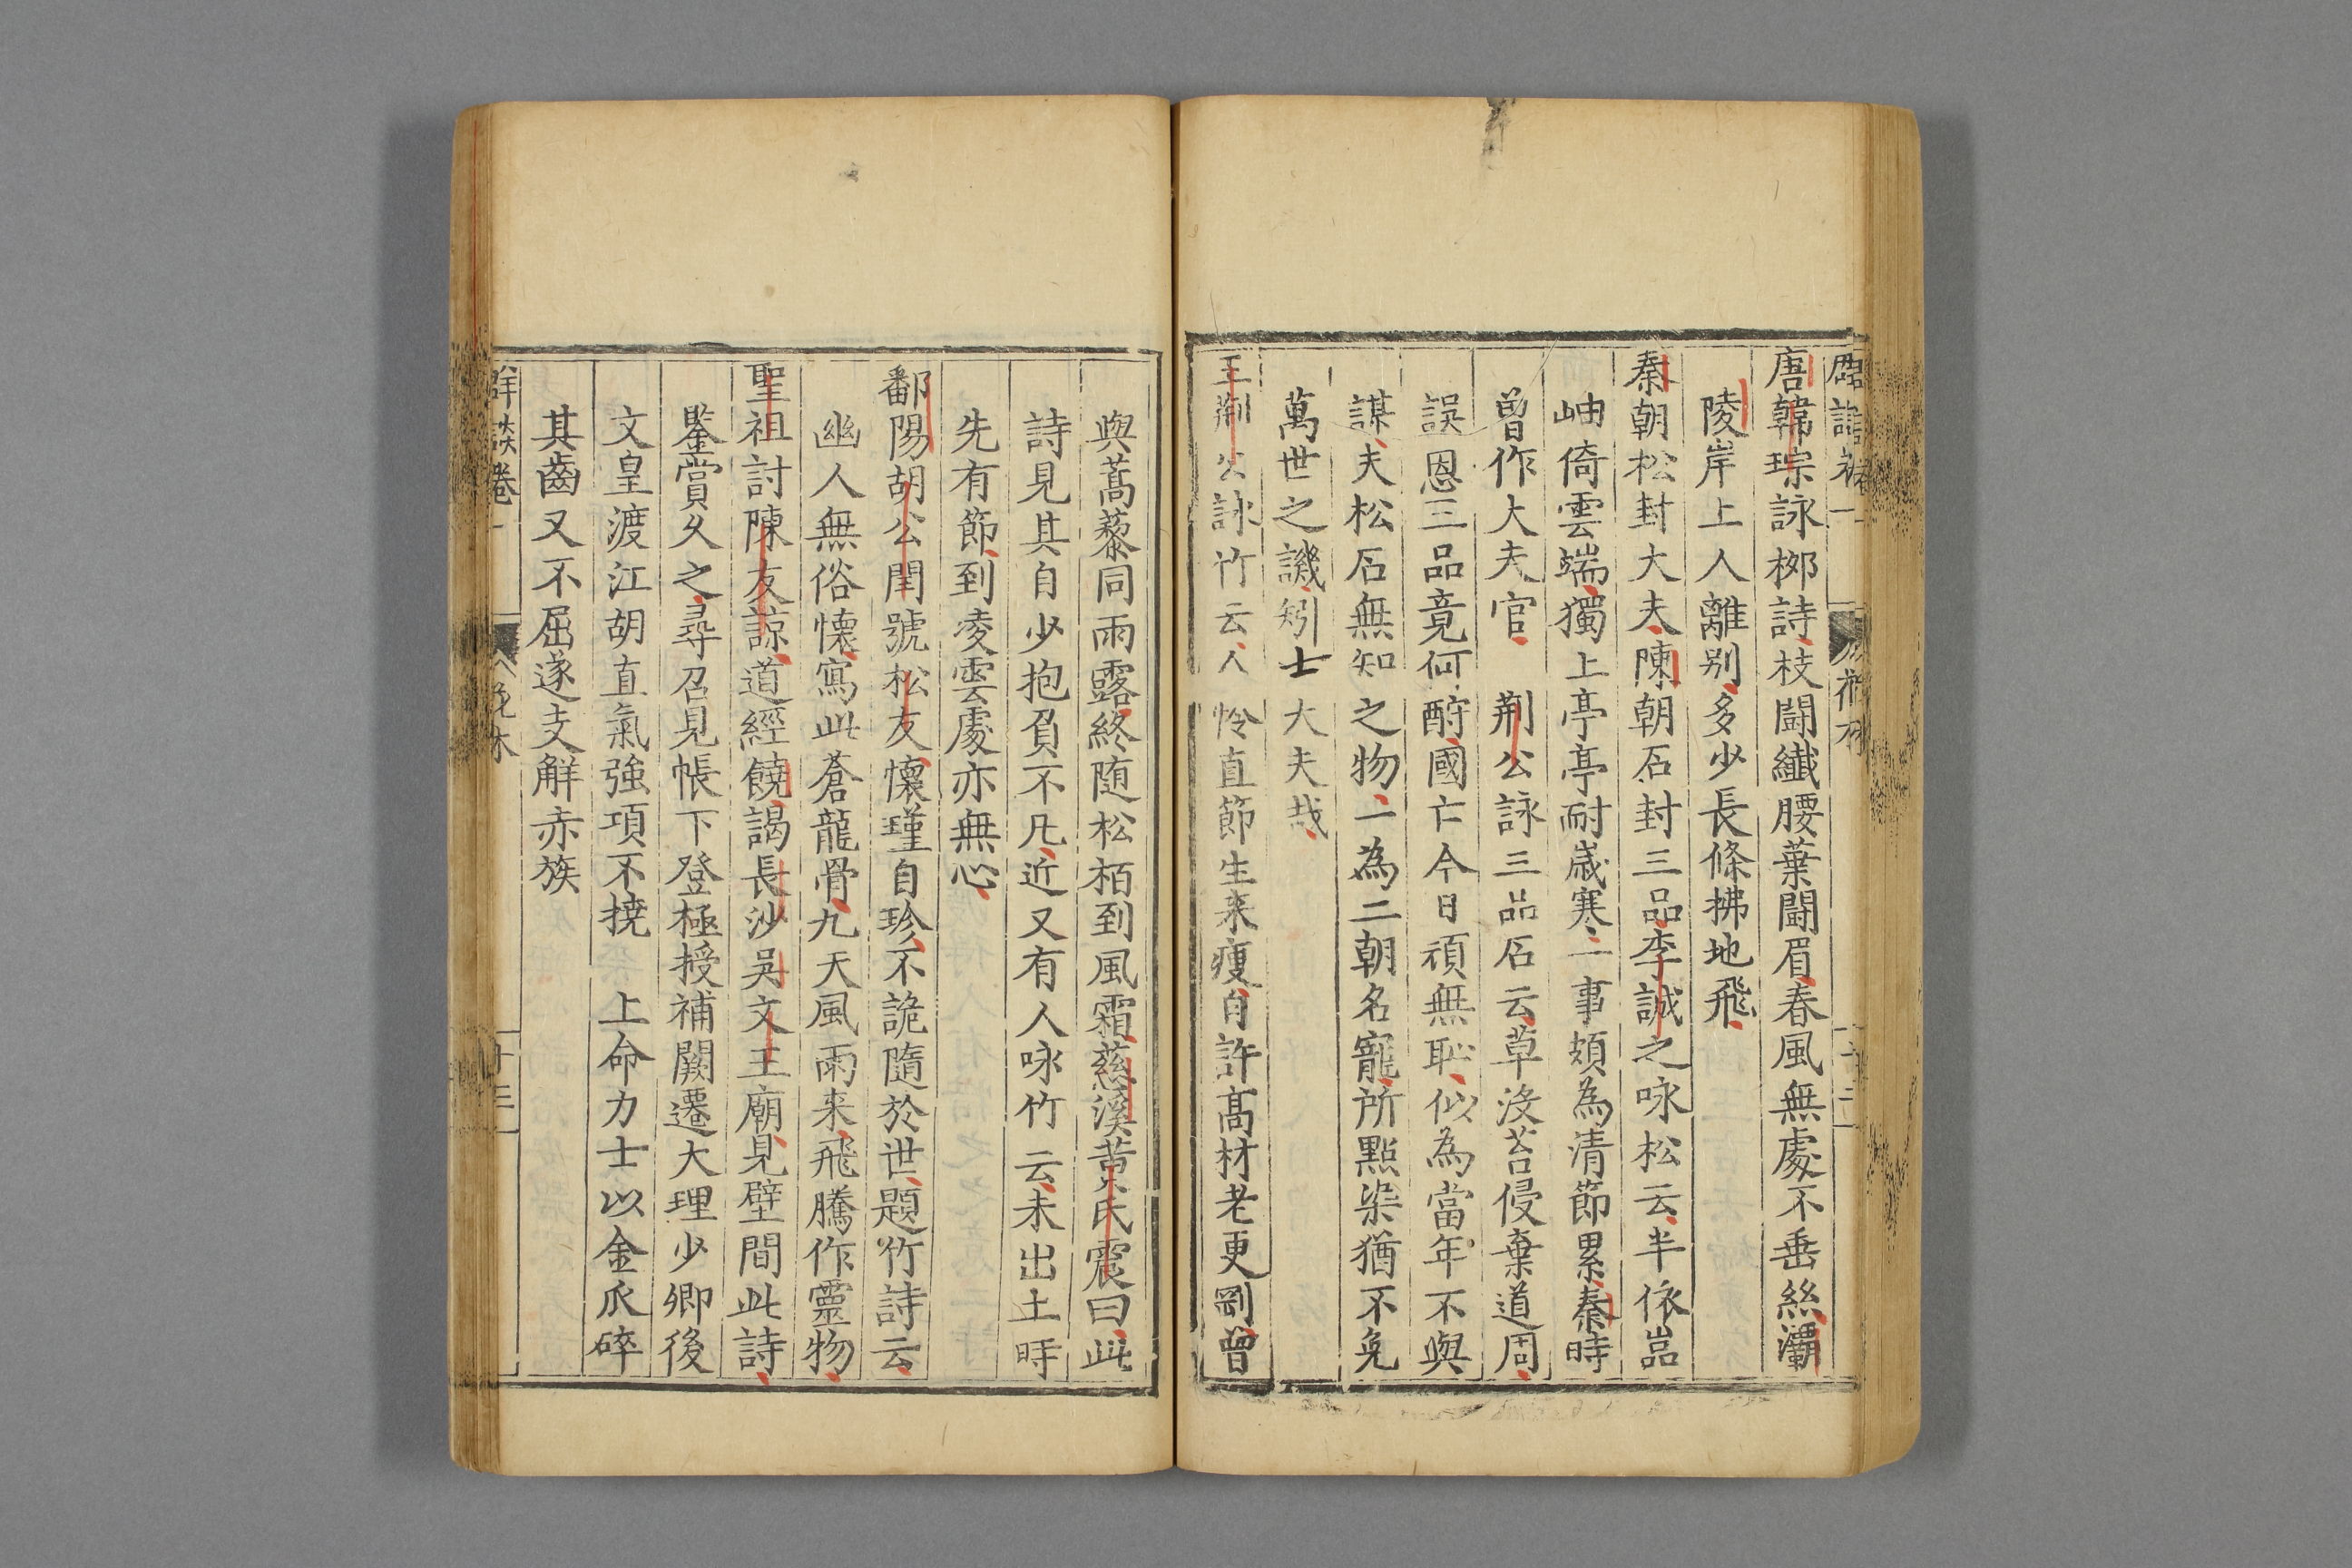 唐韓琮詠栁詩枝闘纖腰葉闘眉春風無處不垂絲灞
陵岸上人離别多少長條拂地飛
秦朝松封大夫陳朝石封三品李誠之咏松云半依嵓
岫倚雲端獨上亭亭耐歳寒一事頗為清節累秦時
曾作大夫官 荆公詠三品石云草没苔侵棄道周
誤恩三品竟何酧國亡今日頑無恥似為當年不與
謀夫松石無知之物一為二朝名寵所點染猶不免
萬世之譏矧士大夫哉
王荆公詠竹云人怜直節生来瘦自許髙材老更剛曾
與蒿藜同雨露終随松栢到風霜慈溪黄氏震曰此
詩見其自少抱負不凡近又有人咏竹云未出土時
先有節到凌雲處亦無心
鄱陽胡公閏號松友懐瑾自珍不詭隨於世題竹詩云
幽人無俗懐寫此蒼龍骨九天風雨来飛騰作靈物
聖祖討陳友諒道經饒謁長沙吳文王廟見壁間此詩
鑒賞久之尋召見帳下登極授補闕遷大理少卿後
文皇渡江胡直氣強項不撓 上命力士以金爪碎
其齒又不屈遂支解赤族
群談卷一
十三